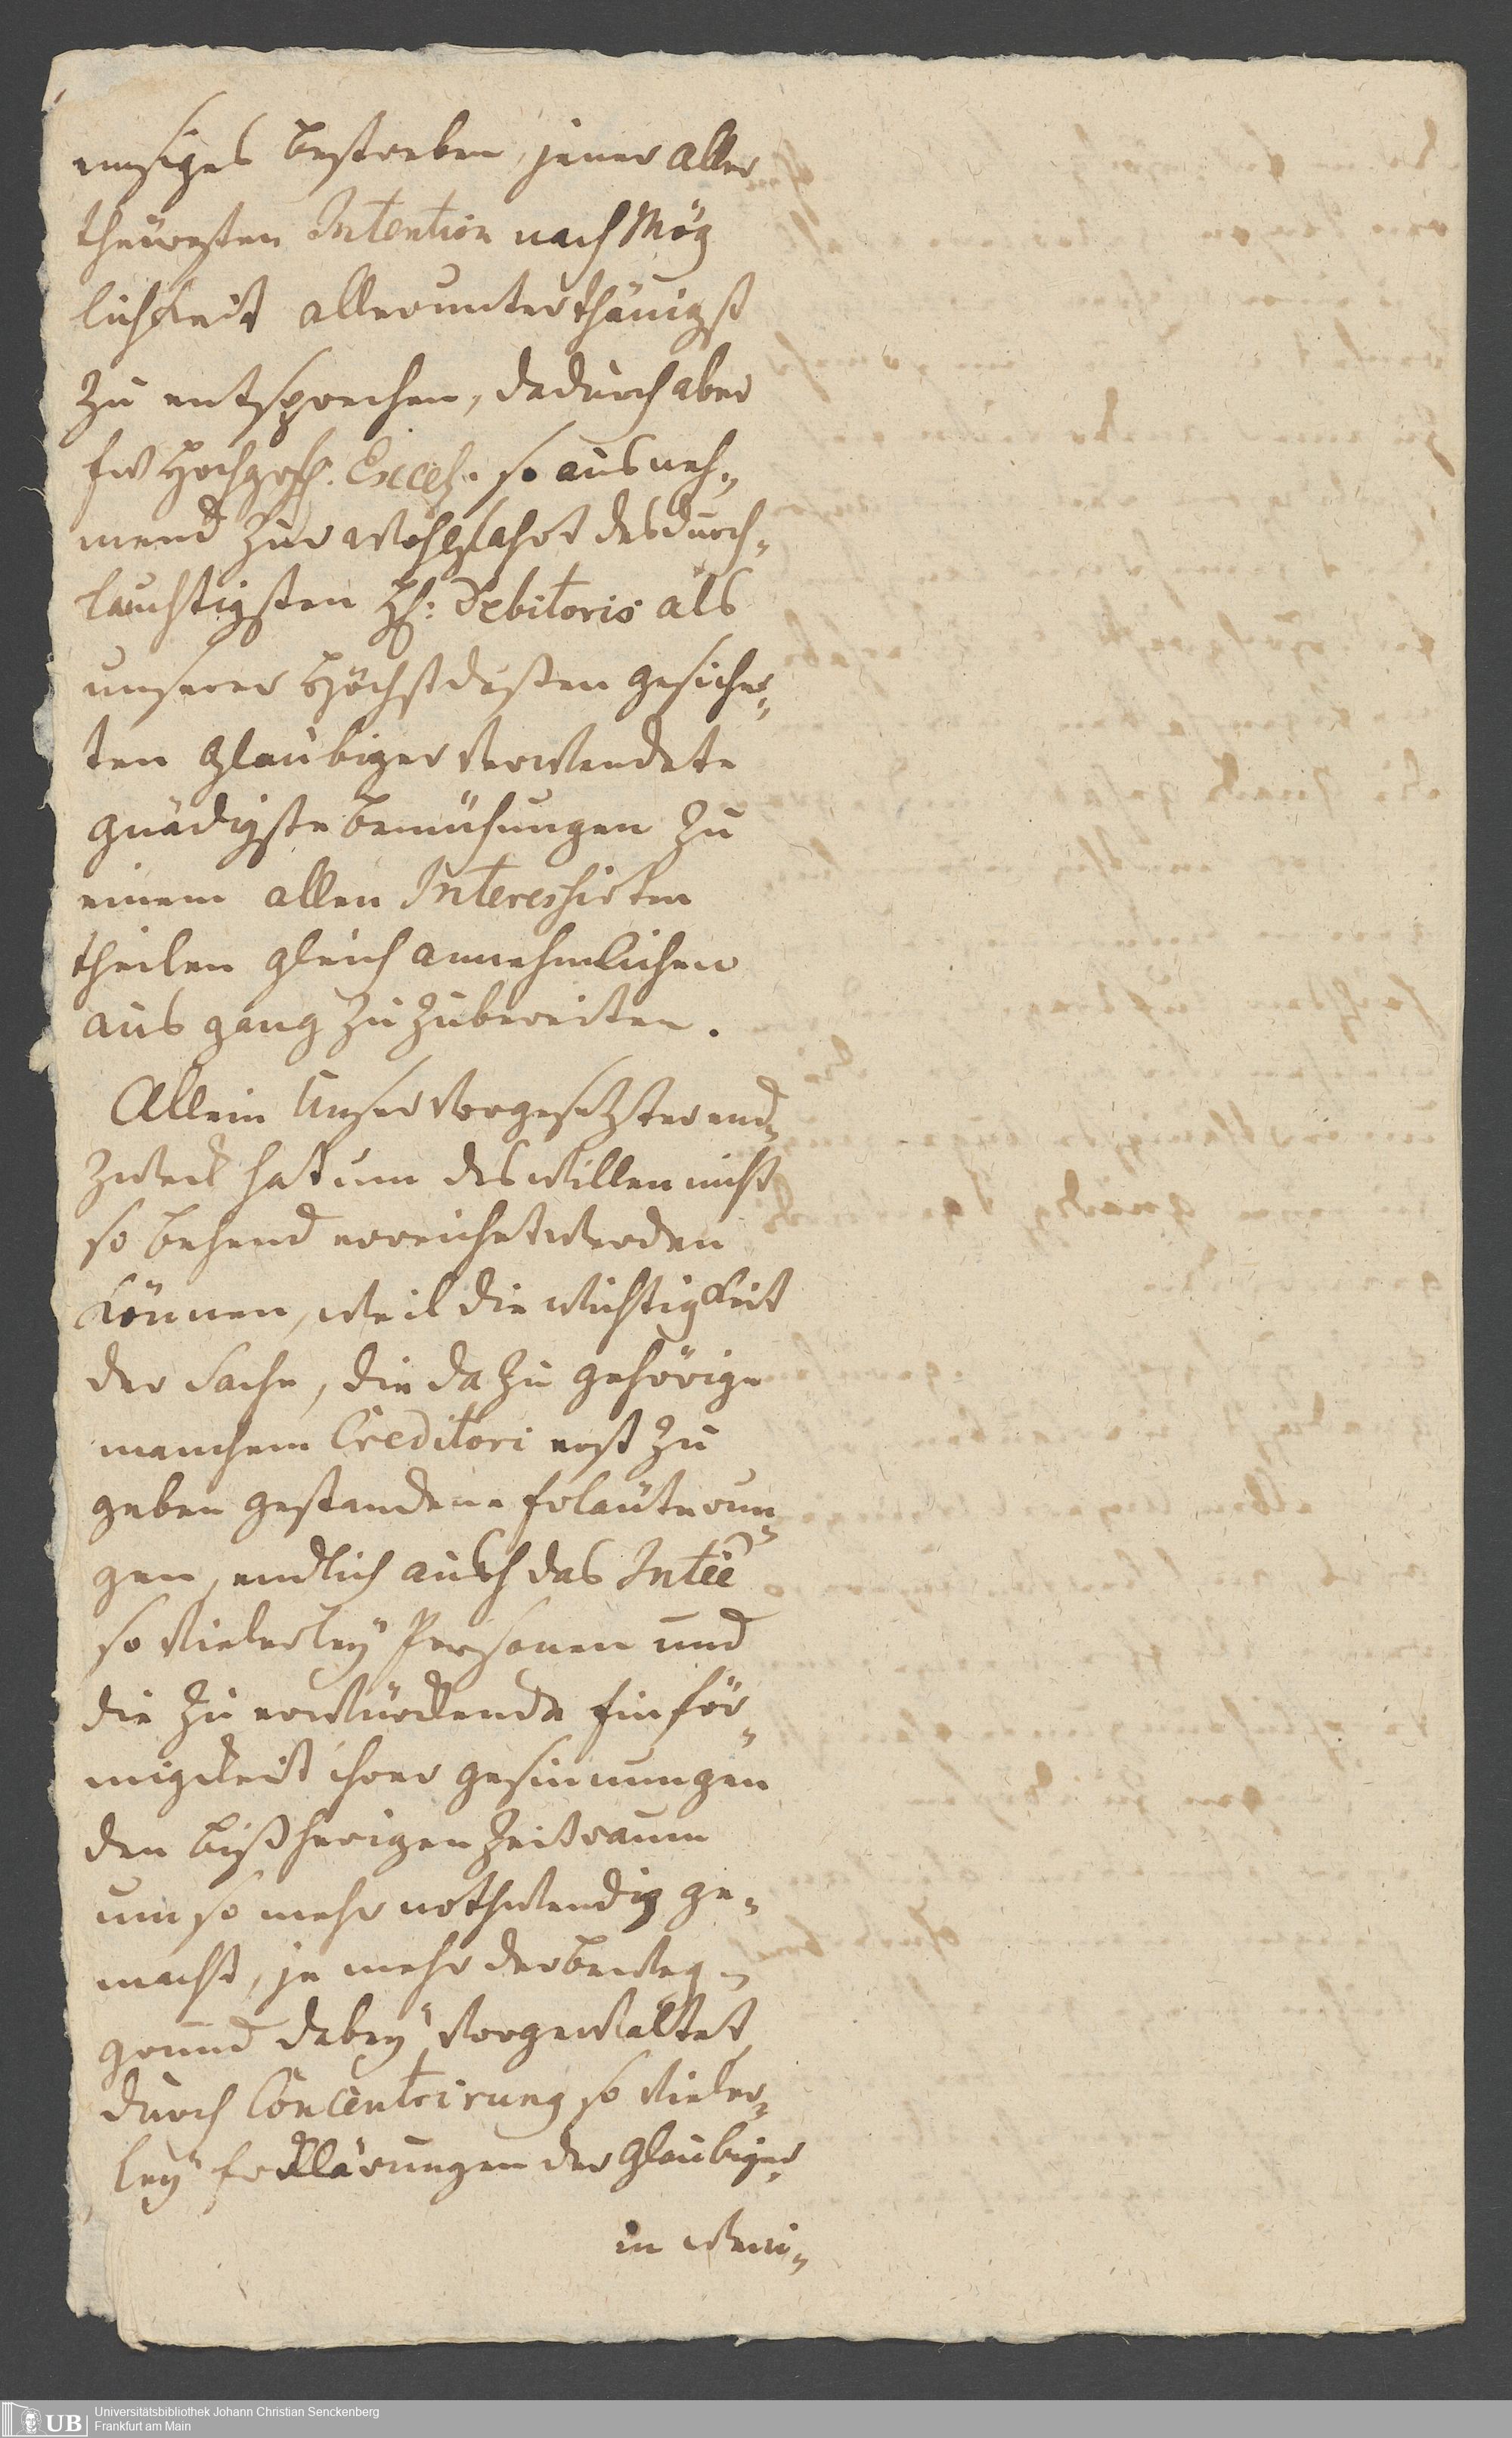 emsiges Bestreben, jener aller
theüresten Intention nach Mög
lichkeit allerunterthänigst
zu entsprechen, dadurch aber
Ew Hochgrfl. Excell. so ausneh„
mend zur Wohlfahrt des durch„
lauchtigsten H: Debitoris als
unserer Höchstdeßen gesicher„
ten Glaubiger verwendete
gnädigste Bemühungen zu
einem allen Interessirten
theilen gleich annehmlichen
ausgang zuzubereiten.
Allein unser Vorgesetzter end„
zweck hat um deswillen nicht
so behend erreichet werden
können, weil die Wichtigkeit
der Sache, die dazu gehörige
manchem Creditori erst zu
geben gestandene Erläuterun„
gen, endlich auch das Intéê
so vielerleÿ Personen und
die zu erwürckende Einför„
migkeit ihrer gesinnungen
den bißherigen Zeitraum
um so mehr nothwendig ge„
macht, je mehr der beweg„
grund dabeÿ vorgewaltet
durch Concentrirung so vieler„
leÿ Erklärungen der Glaubiger„
in weni„
Universitätsbibliothek Johann Christian Senckenberg
Frankfurt am Main
UB